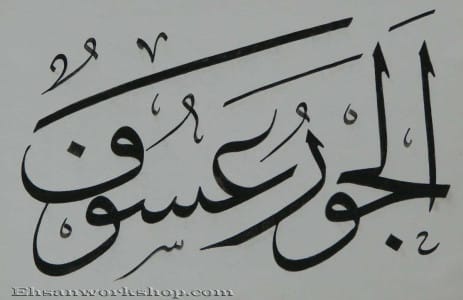 الجَوْرُ عَسُوفٌ
Ehsanworkshop.com